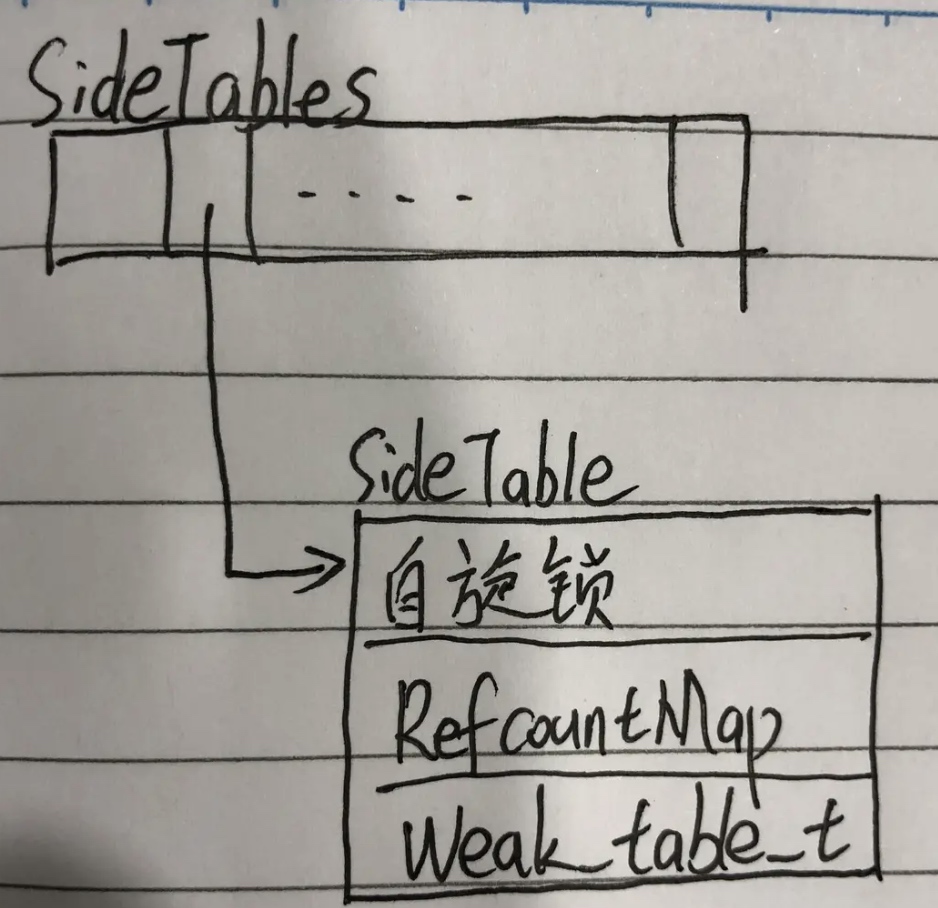 SideTables
SideTable
自旋锁
RefcountMap
Weak_table_t